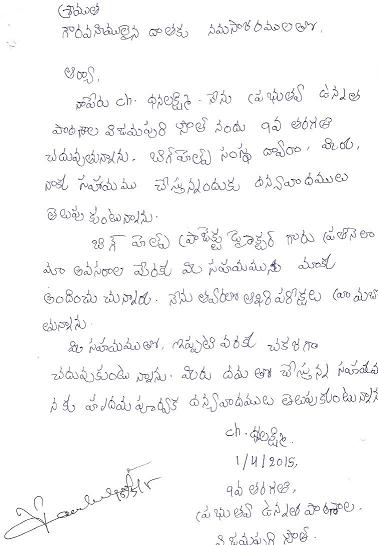 శ్రీయుత
గౌరవనీయులైన దాతకు నమస్కారములతో,
ఆర్యా,
నాపేరు ch. ధనలక్ష్మి. నేను ప్రభుత్వ ఉన్నత
పాఠశాల విజయపురి సౌత్ నందు 9వ తరగతి
చదువుతున్నాను. బిగ్ హెల్ప్ సంస్థ ద్వారా, మీరు,
నాకు సహాయము చేస్తున్నందుకు ధన్యవాదములు
తెలుపుకుంటున్నాను.
బిగ్ హెల్ప్ ప్రాజెక్టు డైరెక్టర్ గారు ప్రతినెలా
మా అవసరాల మేరకు మీ సహాయమును మాకు
అందించుచున్నారు. నేను త్వరలో ఆఖరి పరీక్షలు
తున్నాను.
మీ సహాయముతో, ఇప్పటి వరకు చక్కగా
చదువుకుంటున్నాను. మీరు దయతో చేస్తున్న సహాయము
నకు హృదయపూర్వక ధన్యవాదములు తెలుపుకుంటున్నాను
ch. ధనలక్ష్మి.
1/4/2015,
9వ తరగతి,
ప్రభుత్వ ఉన్నత పాఠశాల.
విజయపురి సౌత్.